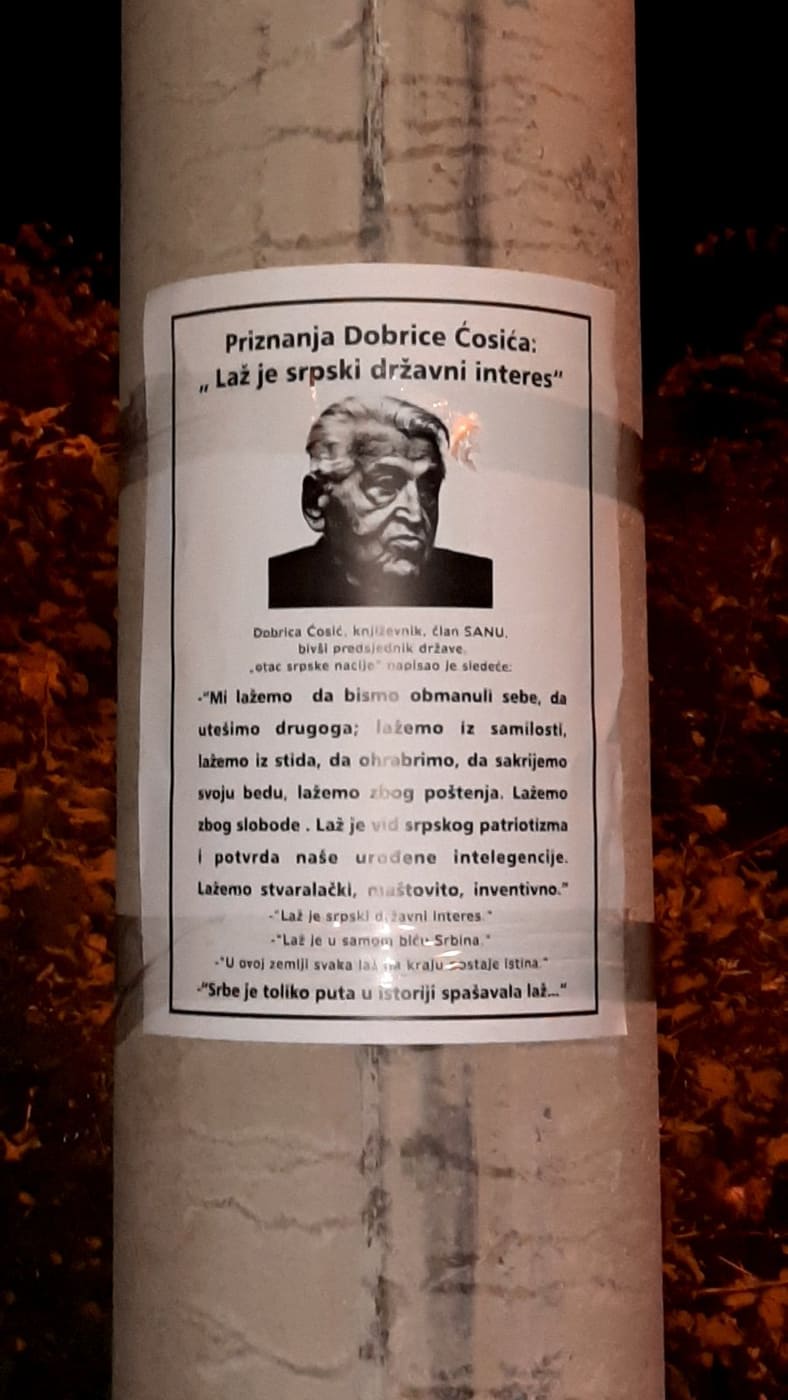 Priznanja Dobrice Ćosića:
„ Laž je srpski državni interes“
Dobrica Ćosić, književnik, član SANU,
bivši predsjednik države,
„otac srpske nacije“ napisao je sledeće:
-“Mi lažemo da bismo obmanuli sebe, da
utešimo drugoga; lažemo iz samilosti,
lažemo iz stida, da ohrabrimo, da sakrijemo
svoju bedu, lažemo zbog poštenja. Lažemo
zbog slobode . Laž je vid srpskog patriotizma
i potvrda naše urođene intelegencije.
Lažemo stvaralački, maštovito, inventivno.”
-“Laž je srpski državni interes.“
-“Laž je u samom biću Srbina.“
-“U ovoj zemlji svaka laž na kraju postaje istina.“
-“Srbe je toliko puta u istoriji spašavala laž...“